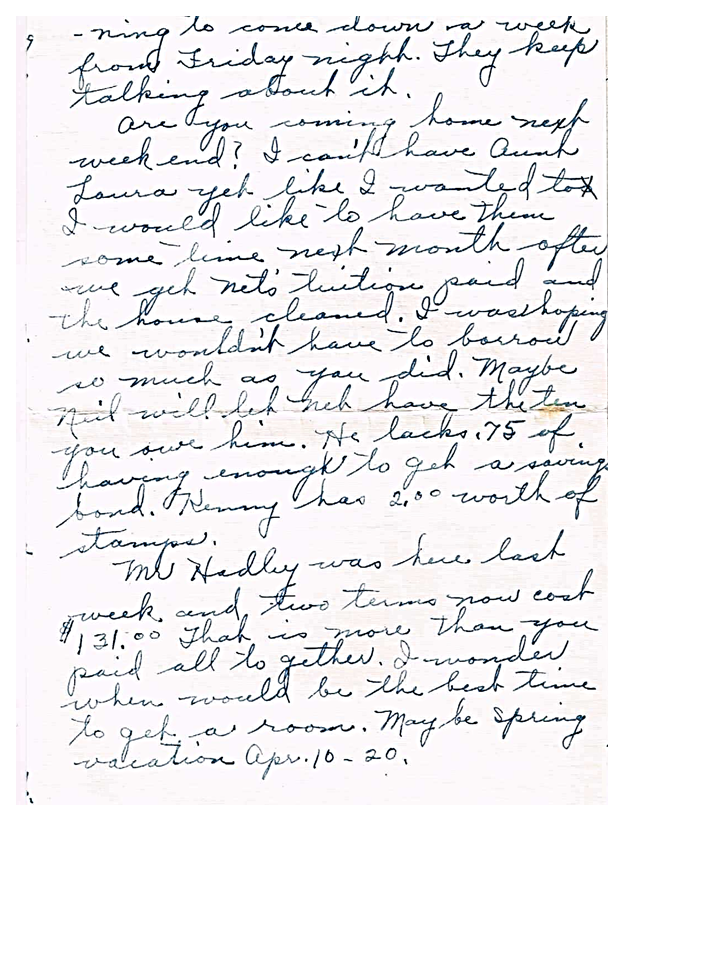 -ning to come down a week
from Friday night. They keep
talking about it.
Are you coming home next
week end? I can't have Aunt
Laura yet like I wanted to
I would like to have them
some time next month after
we get Net's tuition paid and
the house cleaned. I was hoping
we wouldn't have to borrow
so much as you did. Maybe
Neil will let Net have the ten
you owe him. He lacks .75 of
having enough to get a savings
bond. Kenny has 2.00 worth of
stamps.
Mr Hadley was here last
week and two terms now cost
$131.00 That is more than you
paid all to gether. I wonder
when would be the best time
to get a room. May be spring
vacation Apr. 10 - 20.